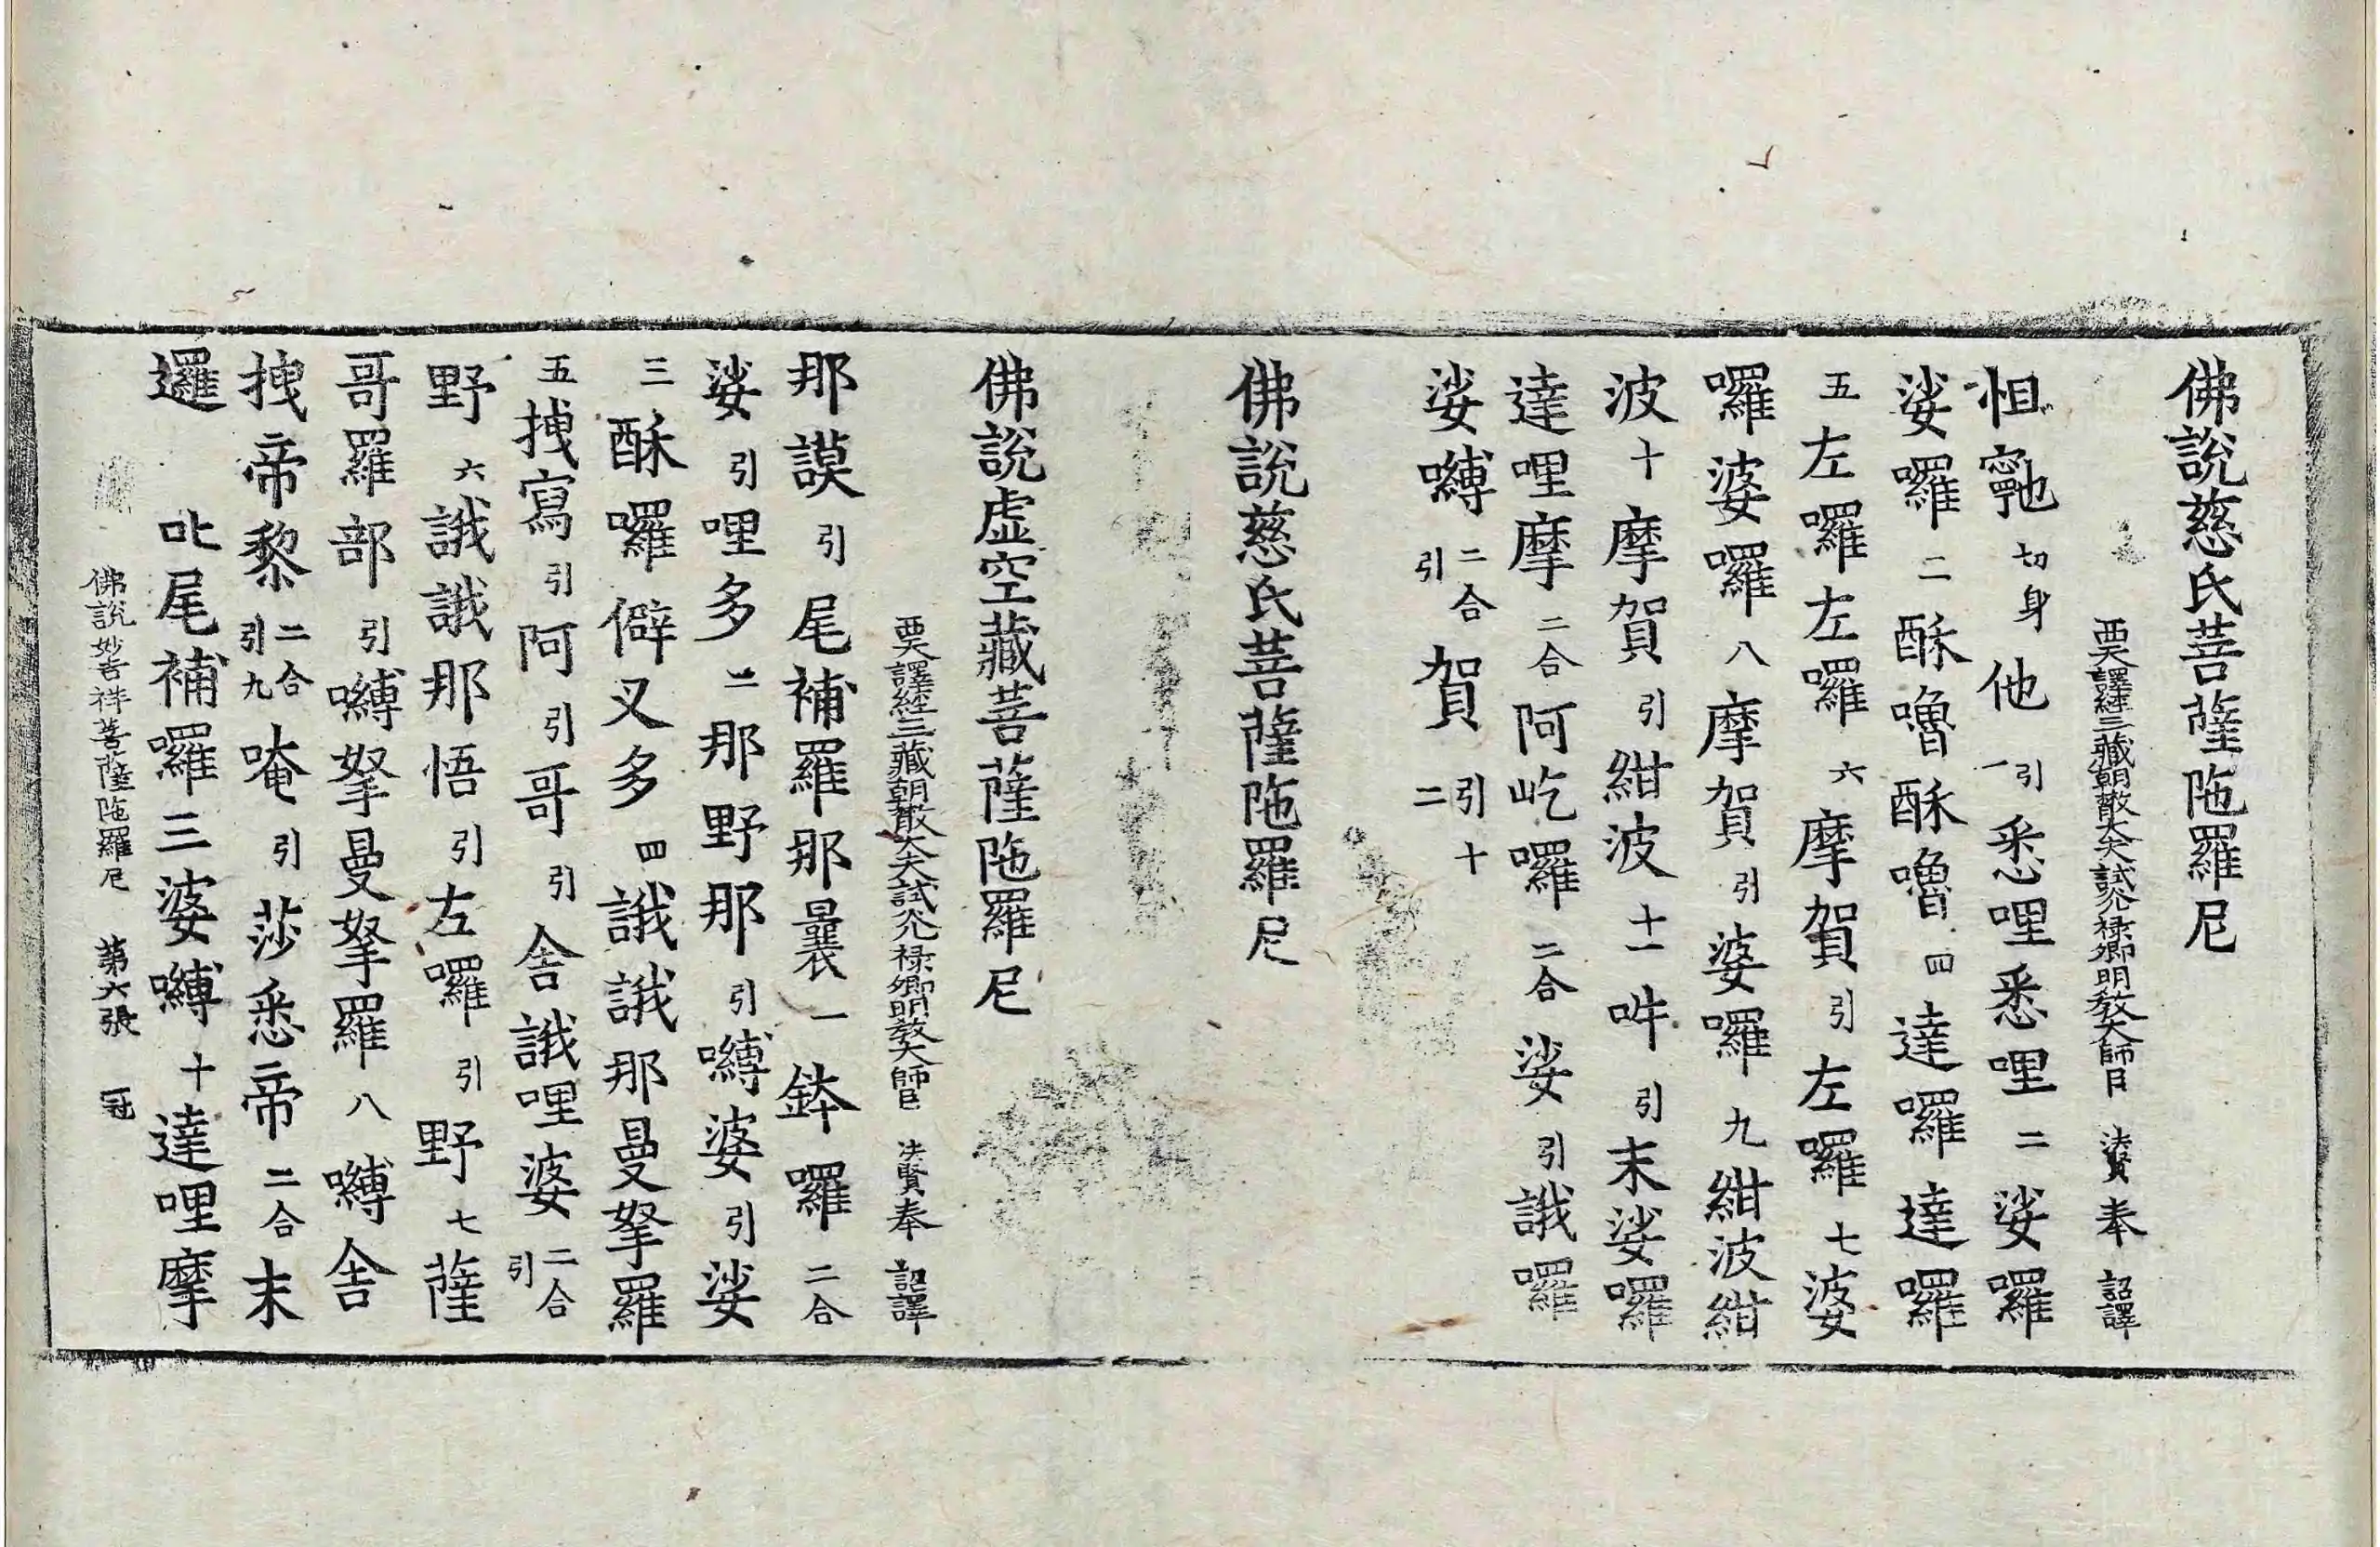 佛說慈氏菩薩陁羅尼
西天譯經三藏朝散大夫試光祿卿明教大師臣 法賢奉 詔譯
怛寧也切身他引一悉哩悉哩二娑囉
娑囉二酥嚕酥嚕四達囉達囉
五左囉左囉六摩賀引左囉七婆
囉婆囉八摩賀引婆囉九紺波紺
波十摩賀引紺波十一吽引末娑囉
達哩摩二合阿屹囉二合娑引誐囉
娑嚩二合引賀引十二
佛說慈氏菩薩陁羅尼
佛說虛空藏菩薩陁羅尼
西天譯經三藏朝散大夫試光祿卿明教大師臣 法賢奉 詔譯
那謨引尾補羅那曩一鉢囉二合
娑引哩多二那野那引嚩婆引娑
三酥囉僻叉多四誐誐那曼拏羅
五拽寫引阿引哥引舍誐哩婆二合引
野六誐誐那悟引左囉引野七薩
哥羅部引嚩拏曼拏羅八嚩舍
拽帝黎二合引九唵引莎悉帝二合末
邏 吡尾補囉三婆嚩十達哩摩
佛說妙吉祥菩薩陁羅尼 第六張 冠